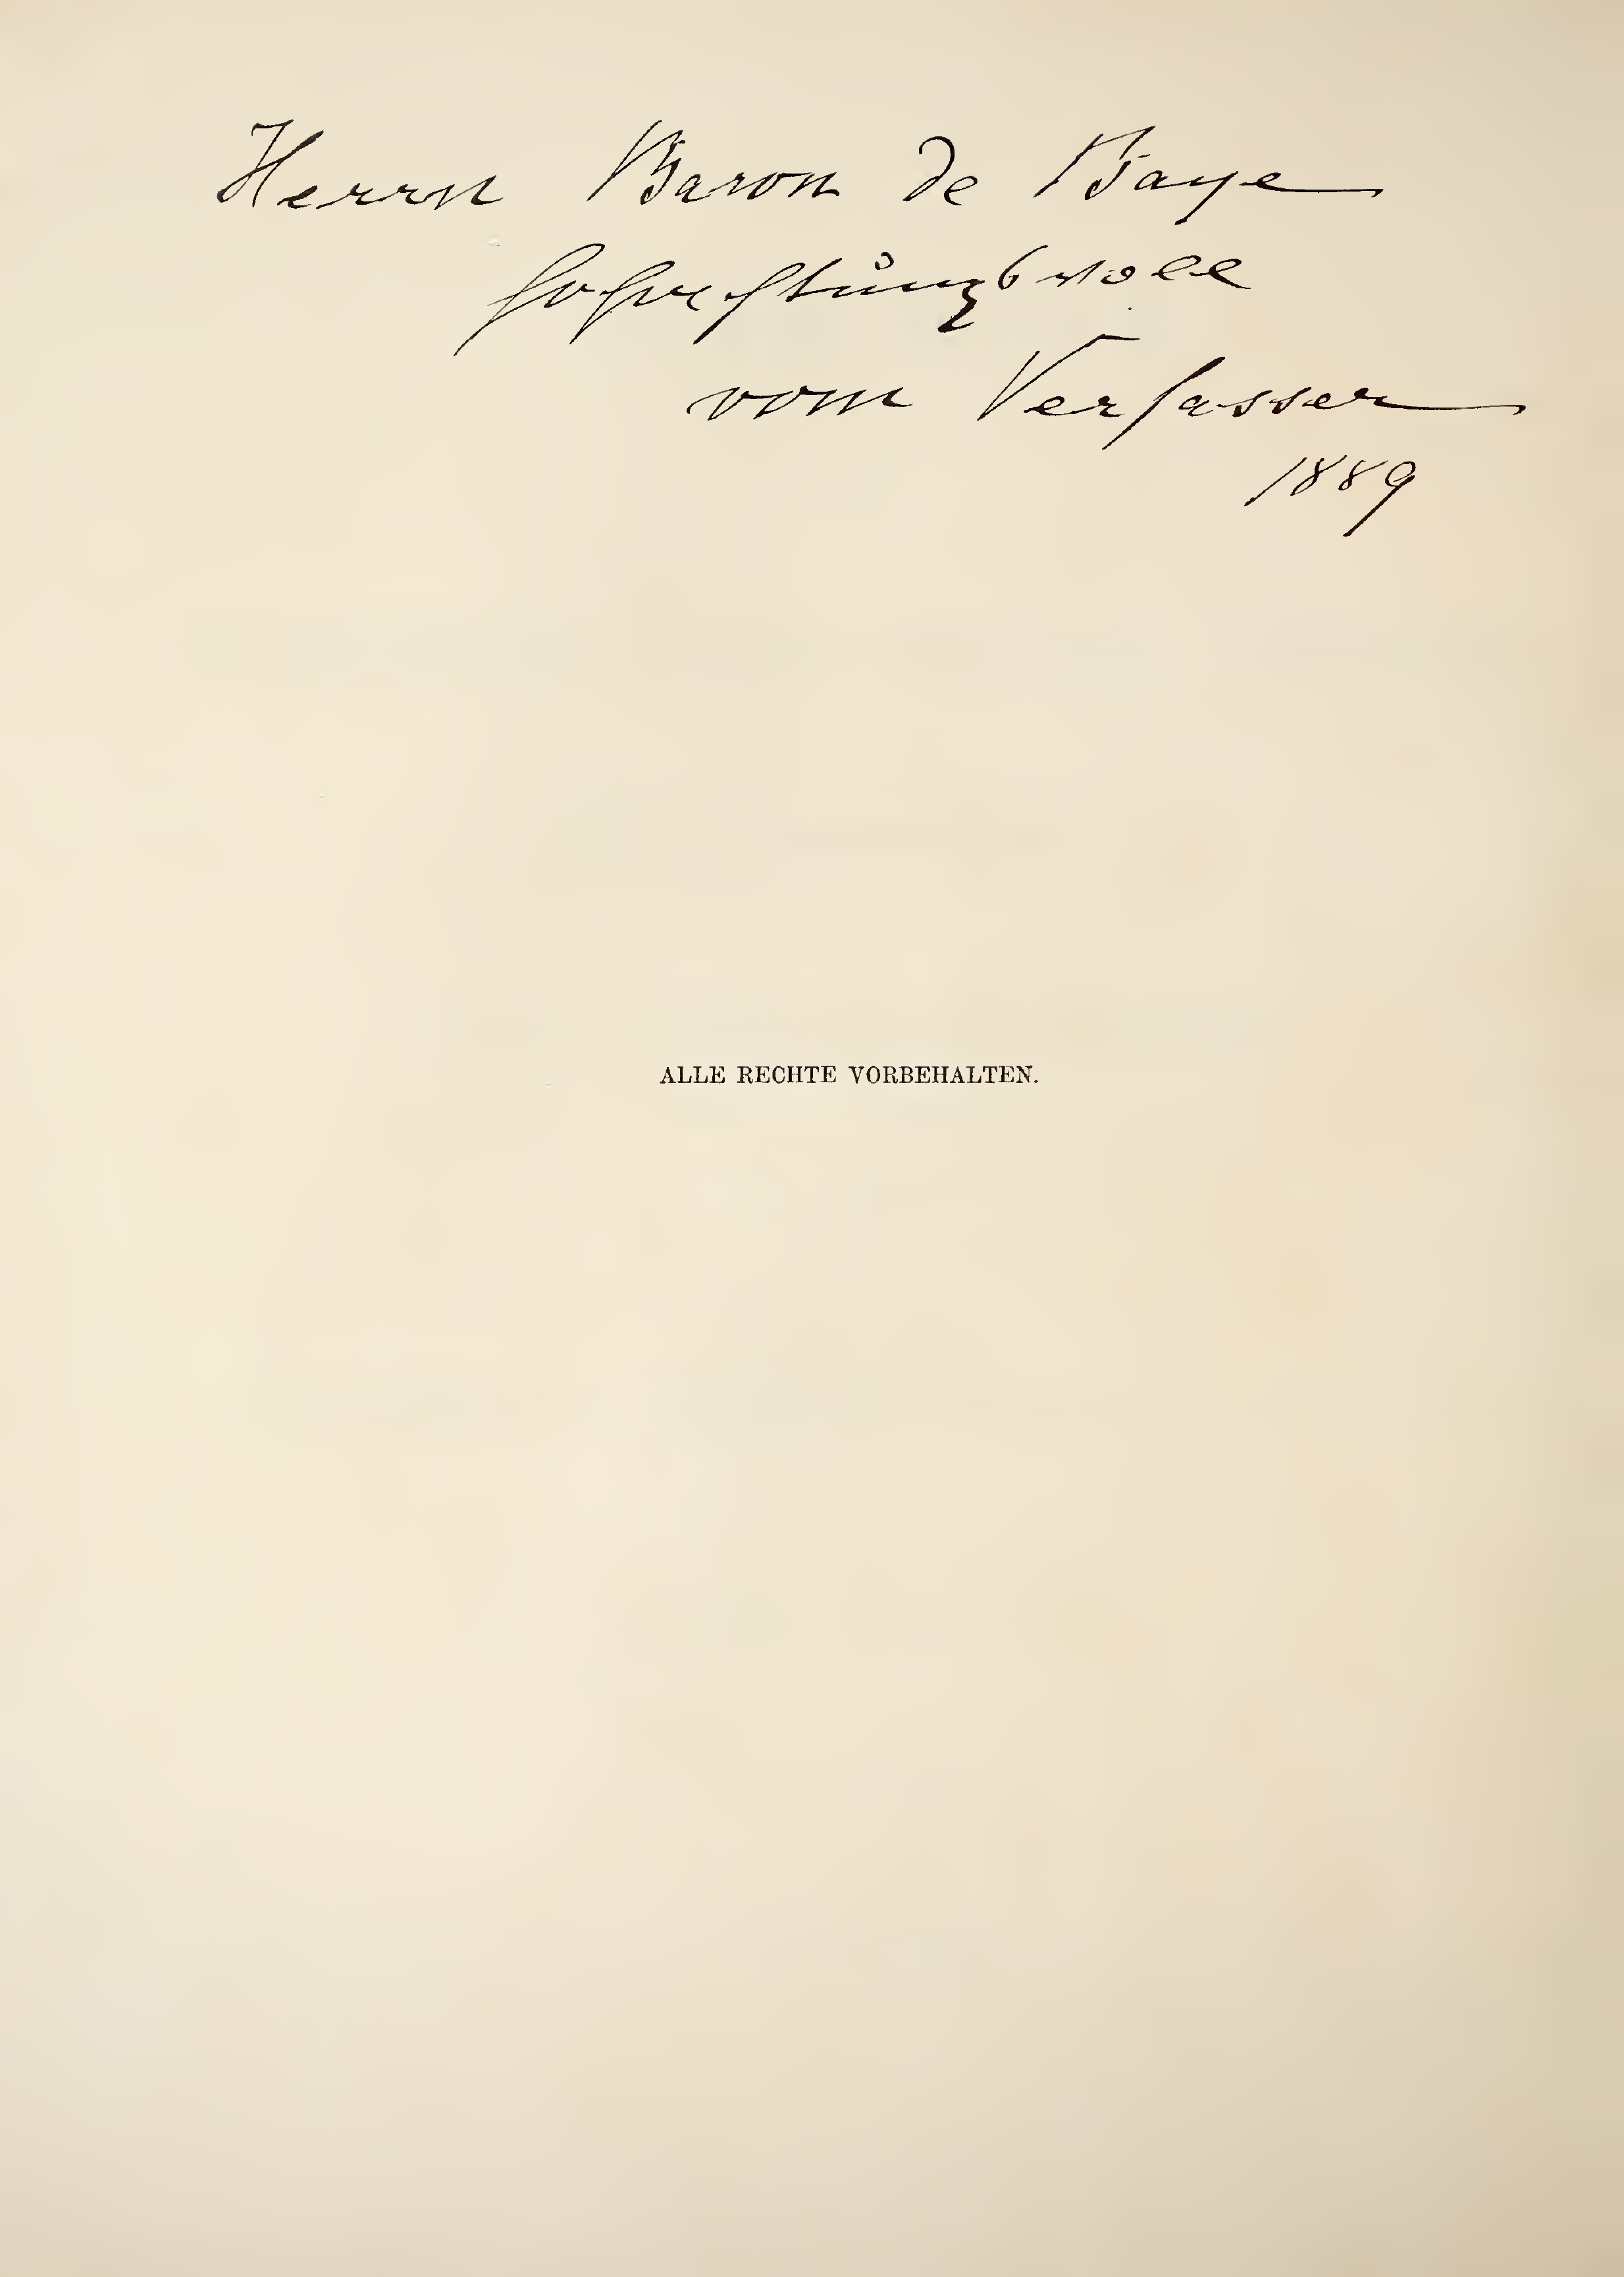 Herrn Baron de Baye
hochachtungsvoll
vom Verfasser
1889
ALLE RECHTE VORBEHALTEN.